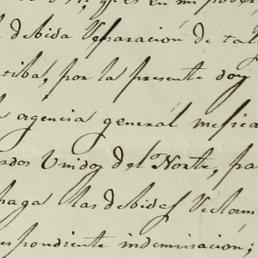 que es en mi poder
debida reparación de tal
por la presente doy
agencia general mexica
ados Unidos del Norte, pa
haga las debidas reclam
espondiente indemnisacion;